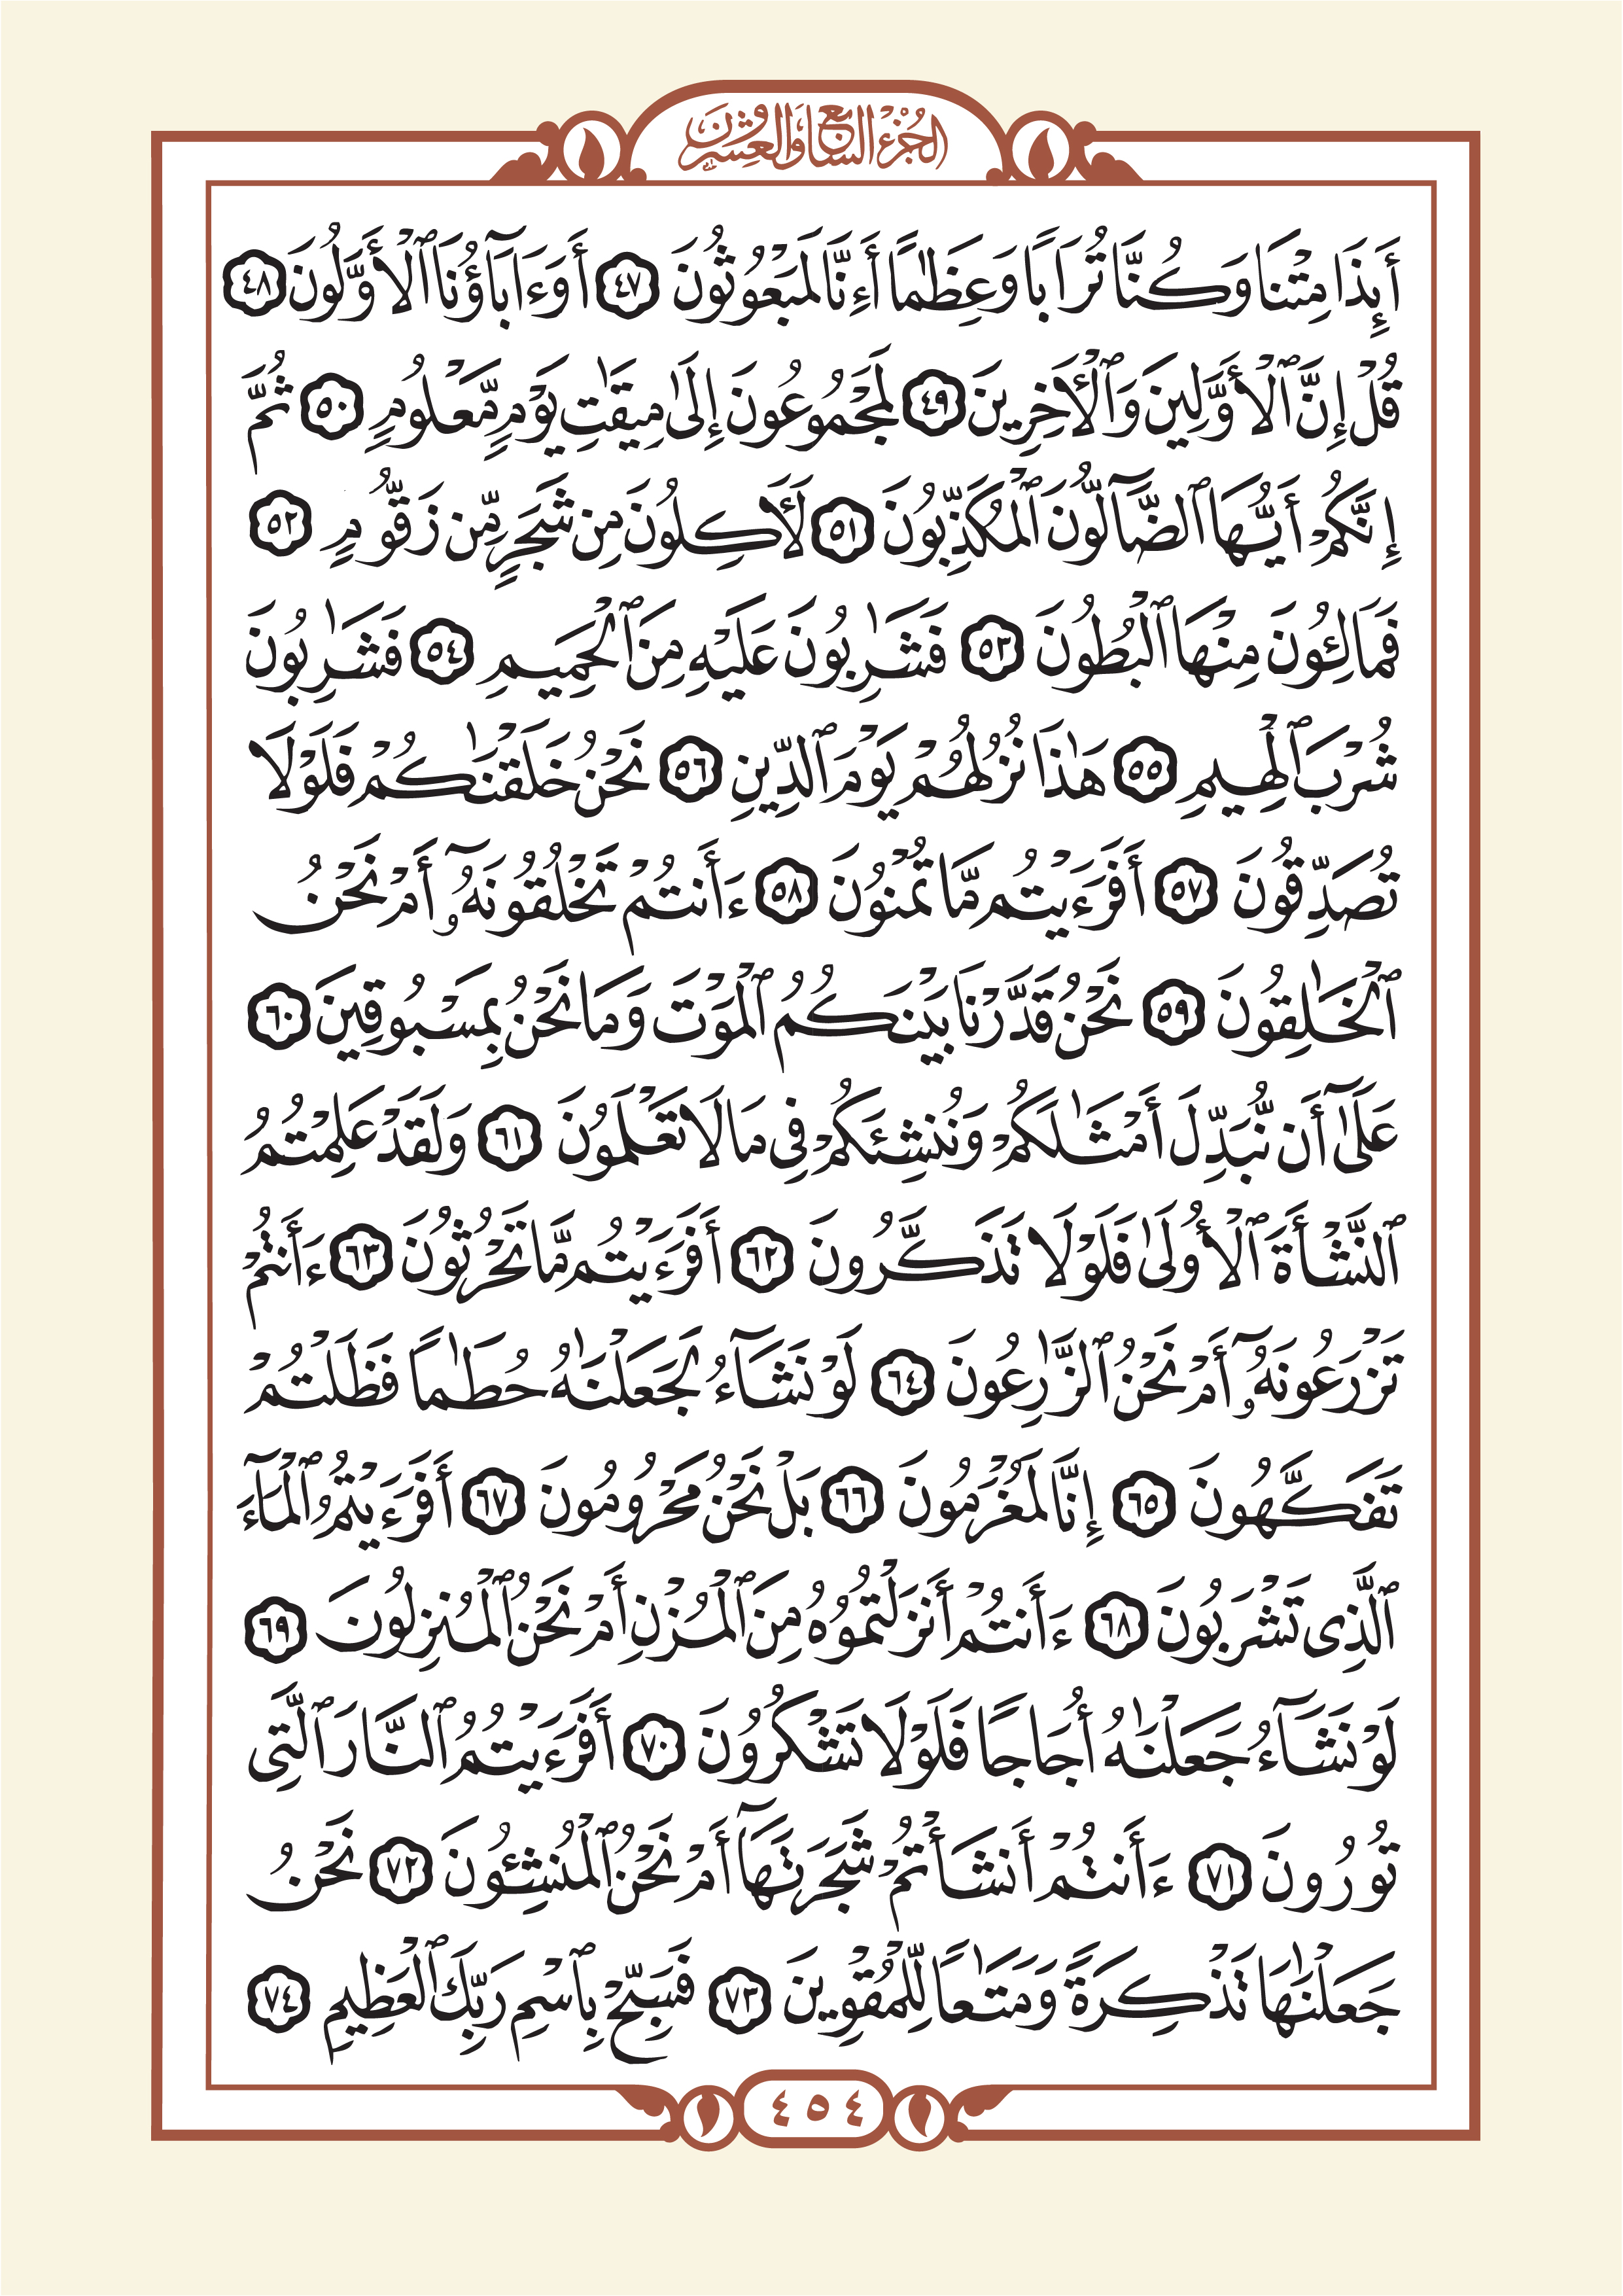 الجزء السابع والعشرون
أَئِذَا مِتْنَا وَكُنَّا تُرَابًا وَعِظَٰمًا أَءِنَّا لَمَبْعُوثُونَ ٤٧ أَوَءَابَآؤُنَا ٱلْأَوَّلُونَ ٤٨
قُلْ إِنَّ ٱلْأَوَّلِينَ وَٱلْأَخِرِينَ ٤٩ لَمَجْمُوعُونَ إِلَىٰ مِيقَٰتِ يَوْمٍ مَّعْلُومٍ ٥٠ ثُمَّ
إِنَّكُمْ أَيُّهَا ٱلضَّآلُّونَ ٱلْمُكَذِّبُونَ ٥١ لَأَكِلُونَ مِن شَجَرٍ مِّن زَقُّومٍ ٥٢
فَمَالِـُٔونَ مِنْهَا ٱلْبُطُونَ ٥٣ فَشَٰرِبُونَ عَلَيْهِ مِنَ ٱلْحَمِيمِ ٥٤ فَشَٰرِبُونَ
شُرْبَ ٱلْهِيمِ ٥٥ هَٰذَا نُزُلُهُمْ يَوْمَ ٱلدِّينِ ٥٦ نَحْنُ خَلَقْنَٰكُمْ فَلَوْلَا
تُصَدِّقُونَ ٥٧ أَفَرَءَيْتُم مَّا تُمْنُونَ ٥٨ ءَأَنتُمْ تَخْلُقُونَهُۥٓ أَمْ نَحْنُ
ٱلْخَٰلِقُونَ ٥٩ نَحْنُ قَدَّرْنَا بَيْنَكُمُ ٱلْمَوْتَ وَمَا نَحْنُ بِمَسْبُوقِينَ ٦٠
عَلَىٰٓ أَن نُّبَدِّلَ أَمْثَٰلَكُمْ وَنُنشِئَكُمْ فِى مَا لَا تَعْلَمُونَ ٦١ وَلَقَدْ عَلِمْتُمُ
ٱلنَّشْأَةَ ٱلْأُولَىٰ فَلَوْلَا تَذَكَّرُونَ ٦٢ أَفَرَءَيْتُم مَّا تَحْرُثُونَ ٦٣ ءَأَنتُمْ
تَزْرَعُونَهُۥٓ أَمْ نَحْنُ ٱلزَّٰرِعُونَ ٦٤ لَوْ نَشَآءُ لَجَعَلْنَٰهُ حُطَٰمًا فَظَلْتُمْ
تَفَكَّهُونَ ٦٥ إِنَّا لَمُغْرَمُونَ ٦٦ بَلْ نَحْنُ مَحْرُومُونَ ٦٧ أَفَرَءَيْتُمُ ٱلْمَآءَ
ٱلَّذِى تَشْرَبُونَ ٦٨ ءَأَنتُمْ أَنزَلْتُمُوهُ مِنَ ٱلْمُزْنِ أَمْ نَحْنُ ٱلْمُنزِلُونَ ٦٩
لَوْ نَشَآءُ جَعَلْنَٰهُ أُجَاجًا فَلَوْلَا تَشْكُرُونَ ٧٠ أَفَرَءَيْتُمُ ٱلنَّارَ ٱلَّتِى
تُورُونَ ٧١ ءَأَنتُمْ أَنشَأْتُمْ شَجَرَتَهَآ أَمْ نَحْنُ ٱلْمُنشِـُٔونَ ٧٢ نَحْنُ
جَعَلْنَٰهَا تَذْكِرَةً وَمَتَٰعًا لِّلْمُقْوِينَ ٧٣ فَسَبِّحْ بِٱسْمِ رَبِّكَ ٱلْعَظِيمِ ٧٤
٤٥٤